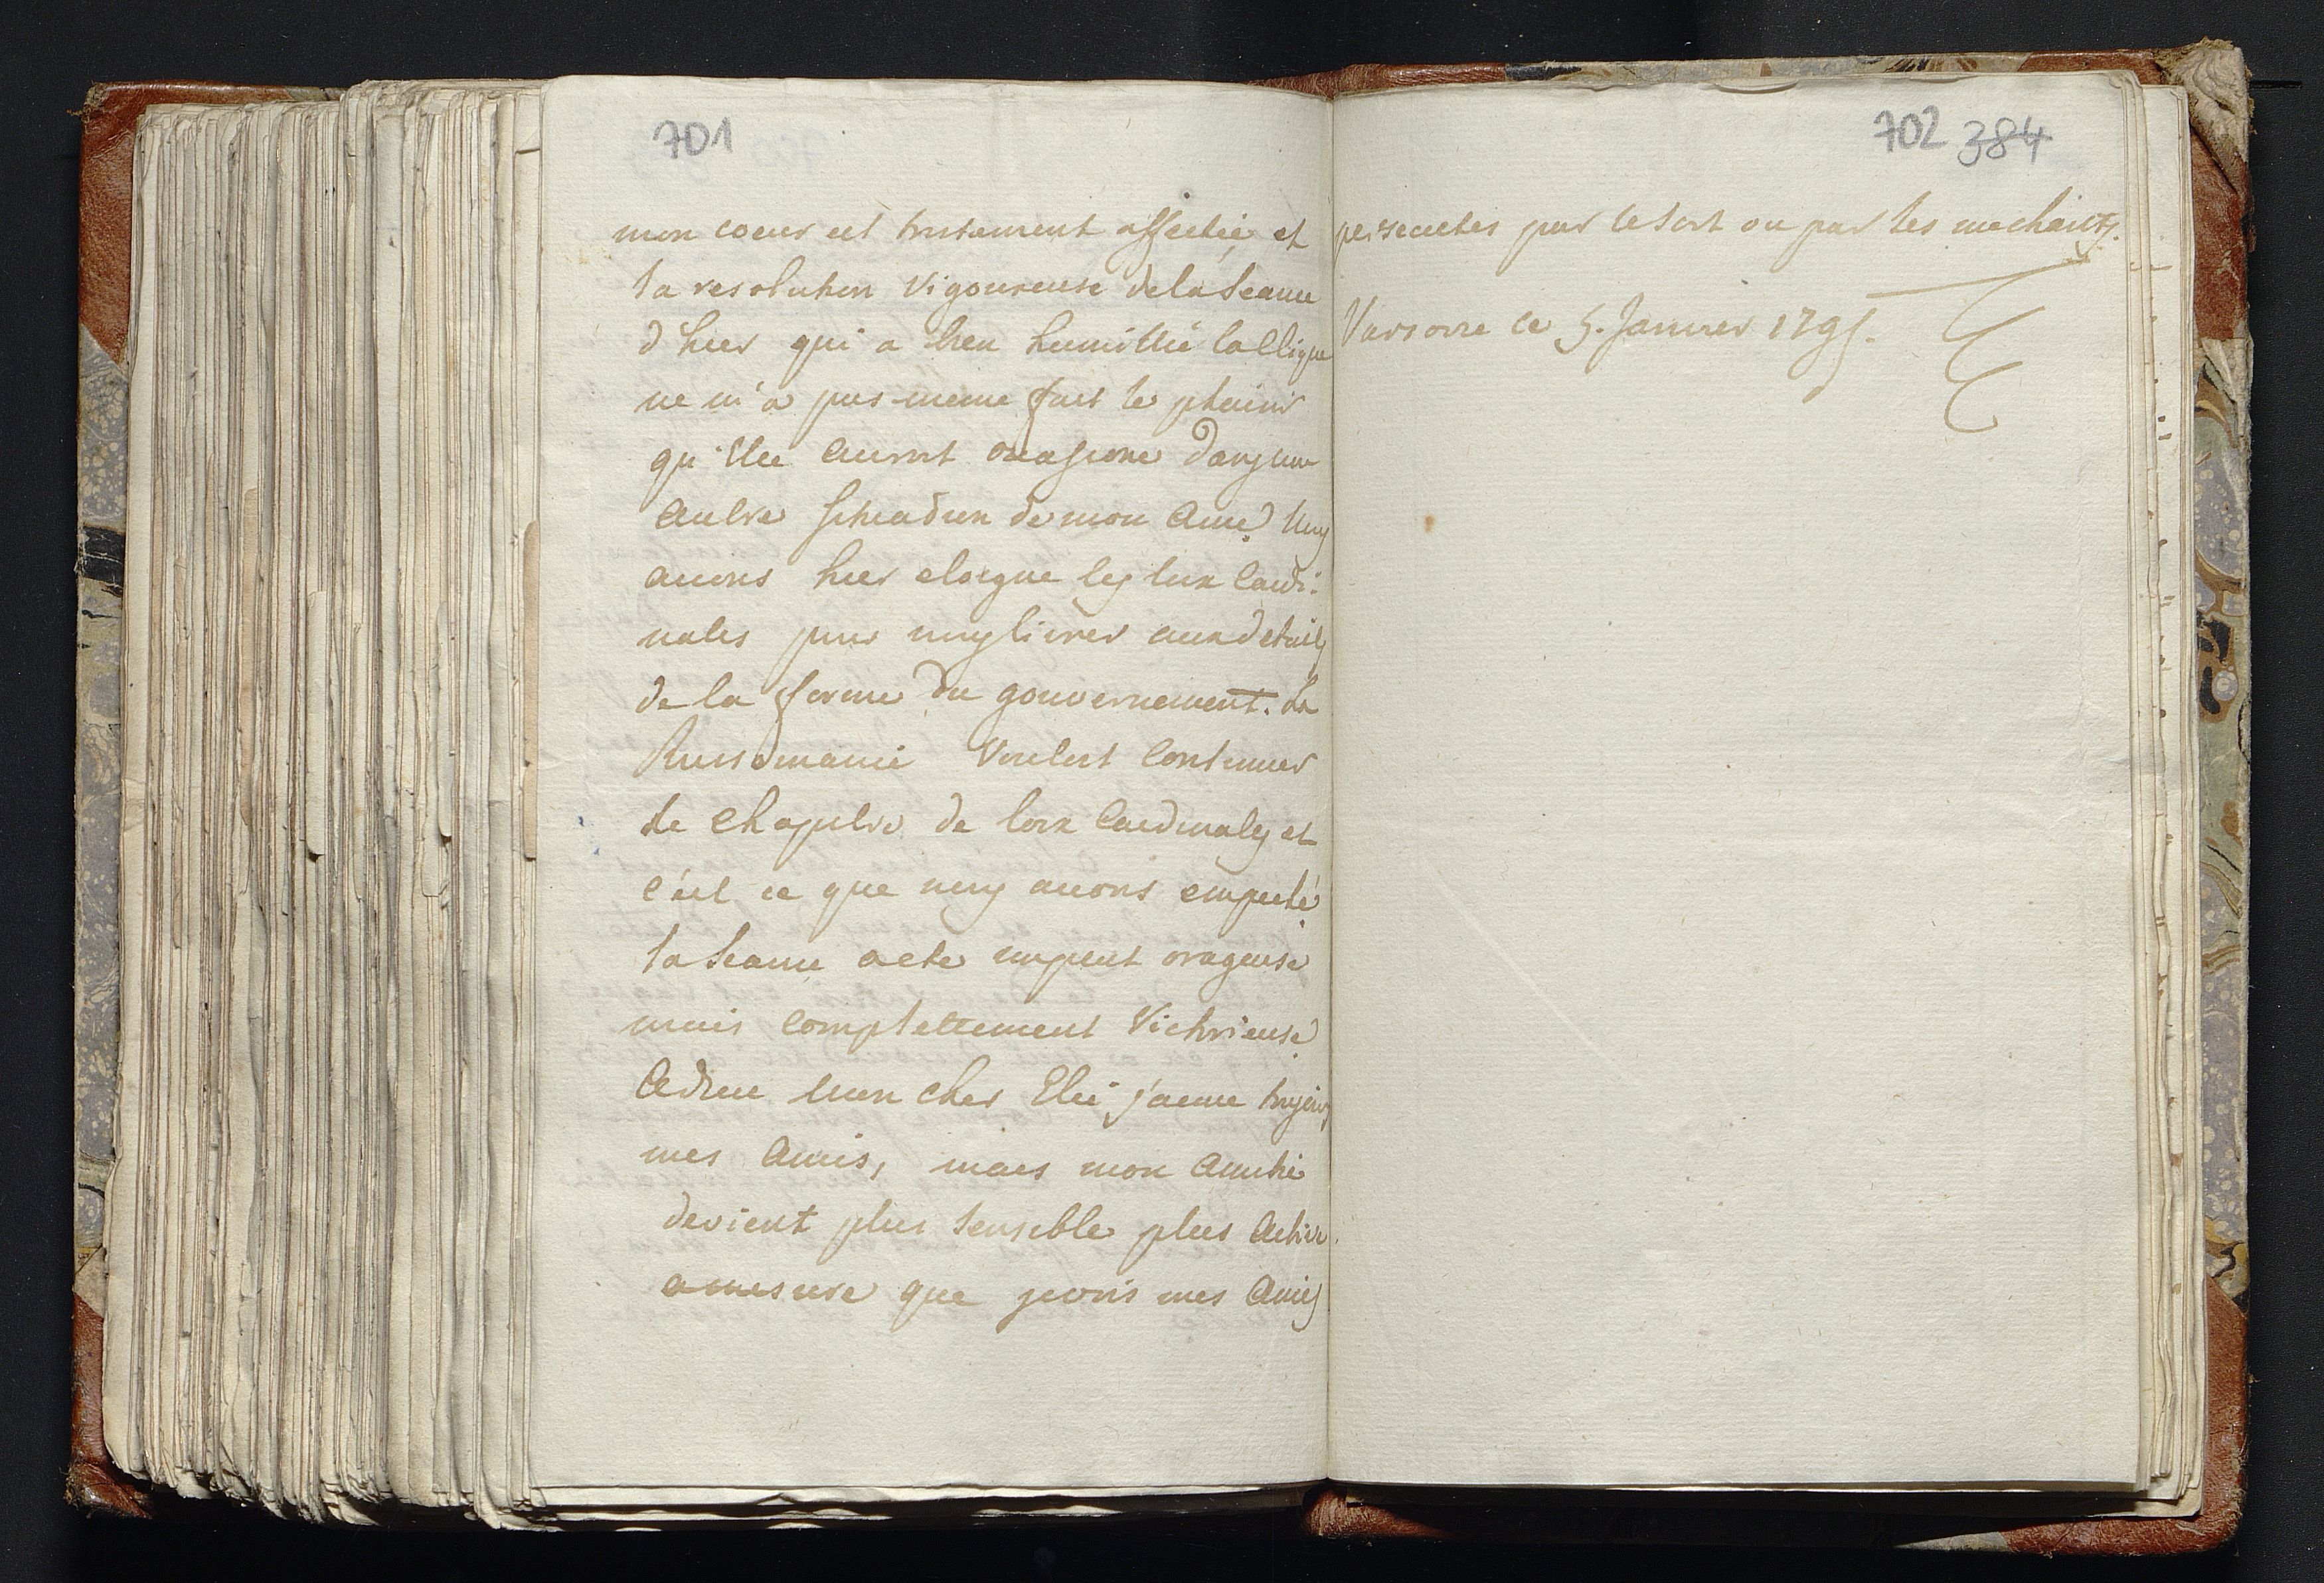 701
mon coeur est tristement affectée et
la resolution vigoureuse de la Seance
d'hier qui a bien humilliée la clique
ne m'a pas meme fait le plaisir
qu'elle auroit ocasione dans une
autre situation de mon Ame. Nous
avons hier eloigne les loix Cardi:
nales pour nous livrer aux details
de la forme du gouvernement. La
Russomanie Vouloit Continuer
le Chapitre de loix Cardinales et
c'est ce que nous avons empeché.
la Seance a eté un peut orageuse
mais complettement Victorieuse.
Adieu mon cher Elie j'aime toujours
mes Amis, mais mon Amitié
devient plus sensible plus Active.
a mesure que je vois mes Amis
702 384
persecutés par le sort ou par les mechants.
Varsovie le 5. Janvier 1791.